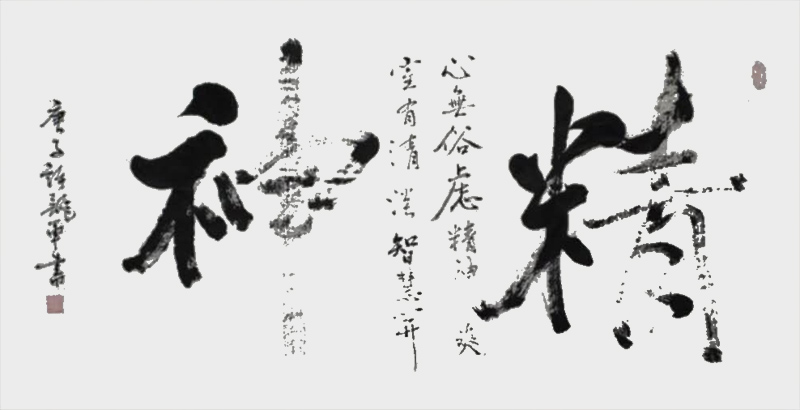 精
心無俗慮精神爽
室有清淡智慧開
神
庚子龍書